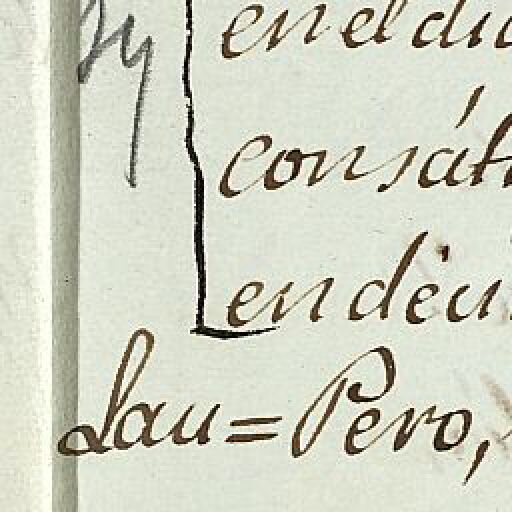 en el di
con sát
en déci
Lau = Pero,